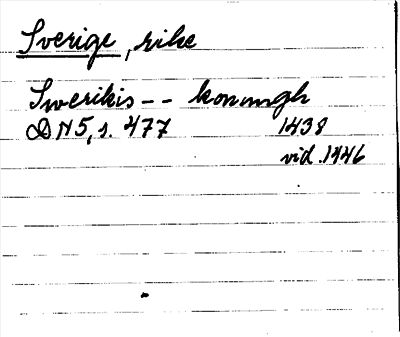 Sverige, rike
Swerikis -- konungh
DN 5, s. 477 1438
vid. 1446